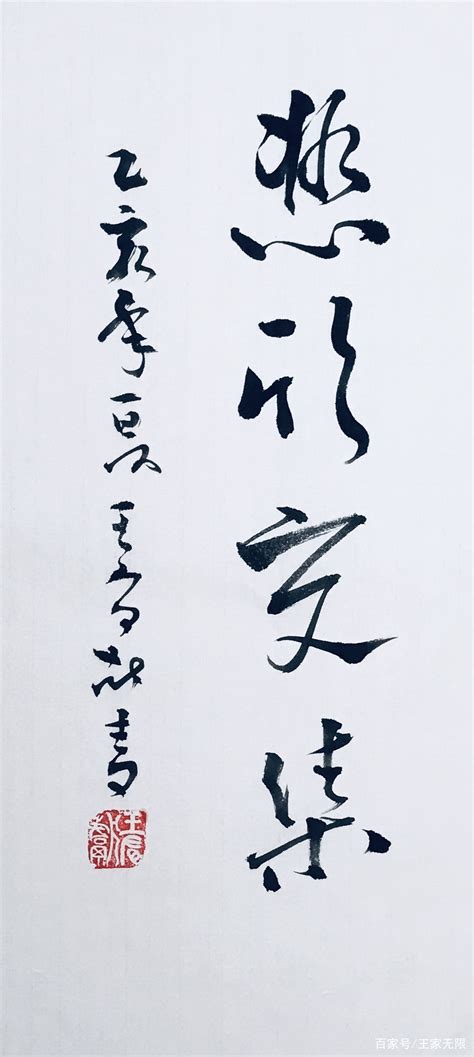 悲欣交集
己亥年夏 王 书
百家号/王家无限